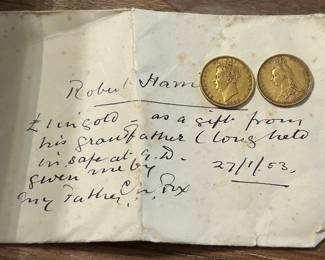 Robert Ham
£1 in gold - as a gift from
his grandfather (long held
in safe at G.D -
given me by 27/1/53,
my Father, C. W. Fox